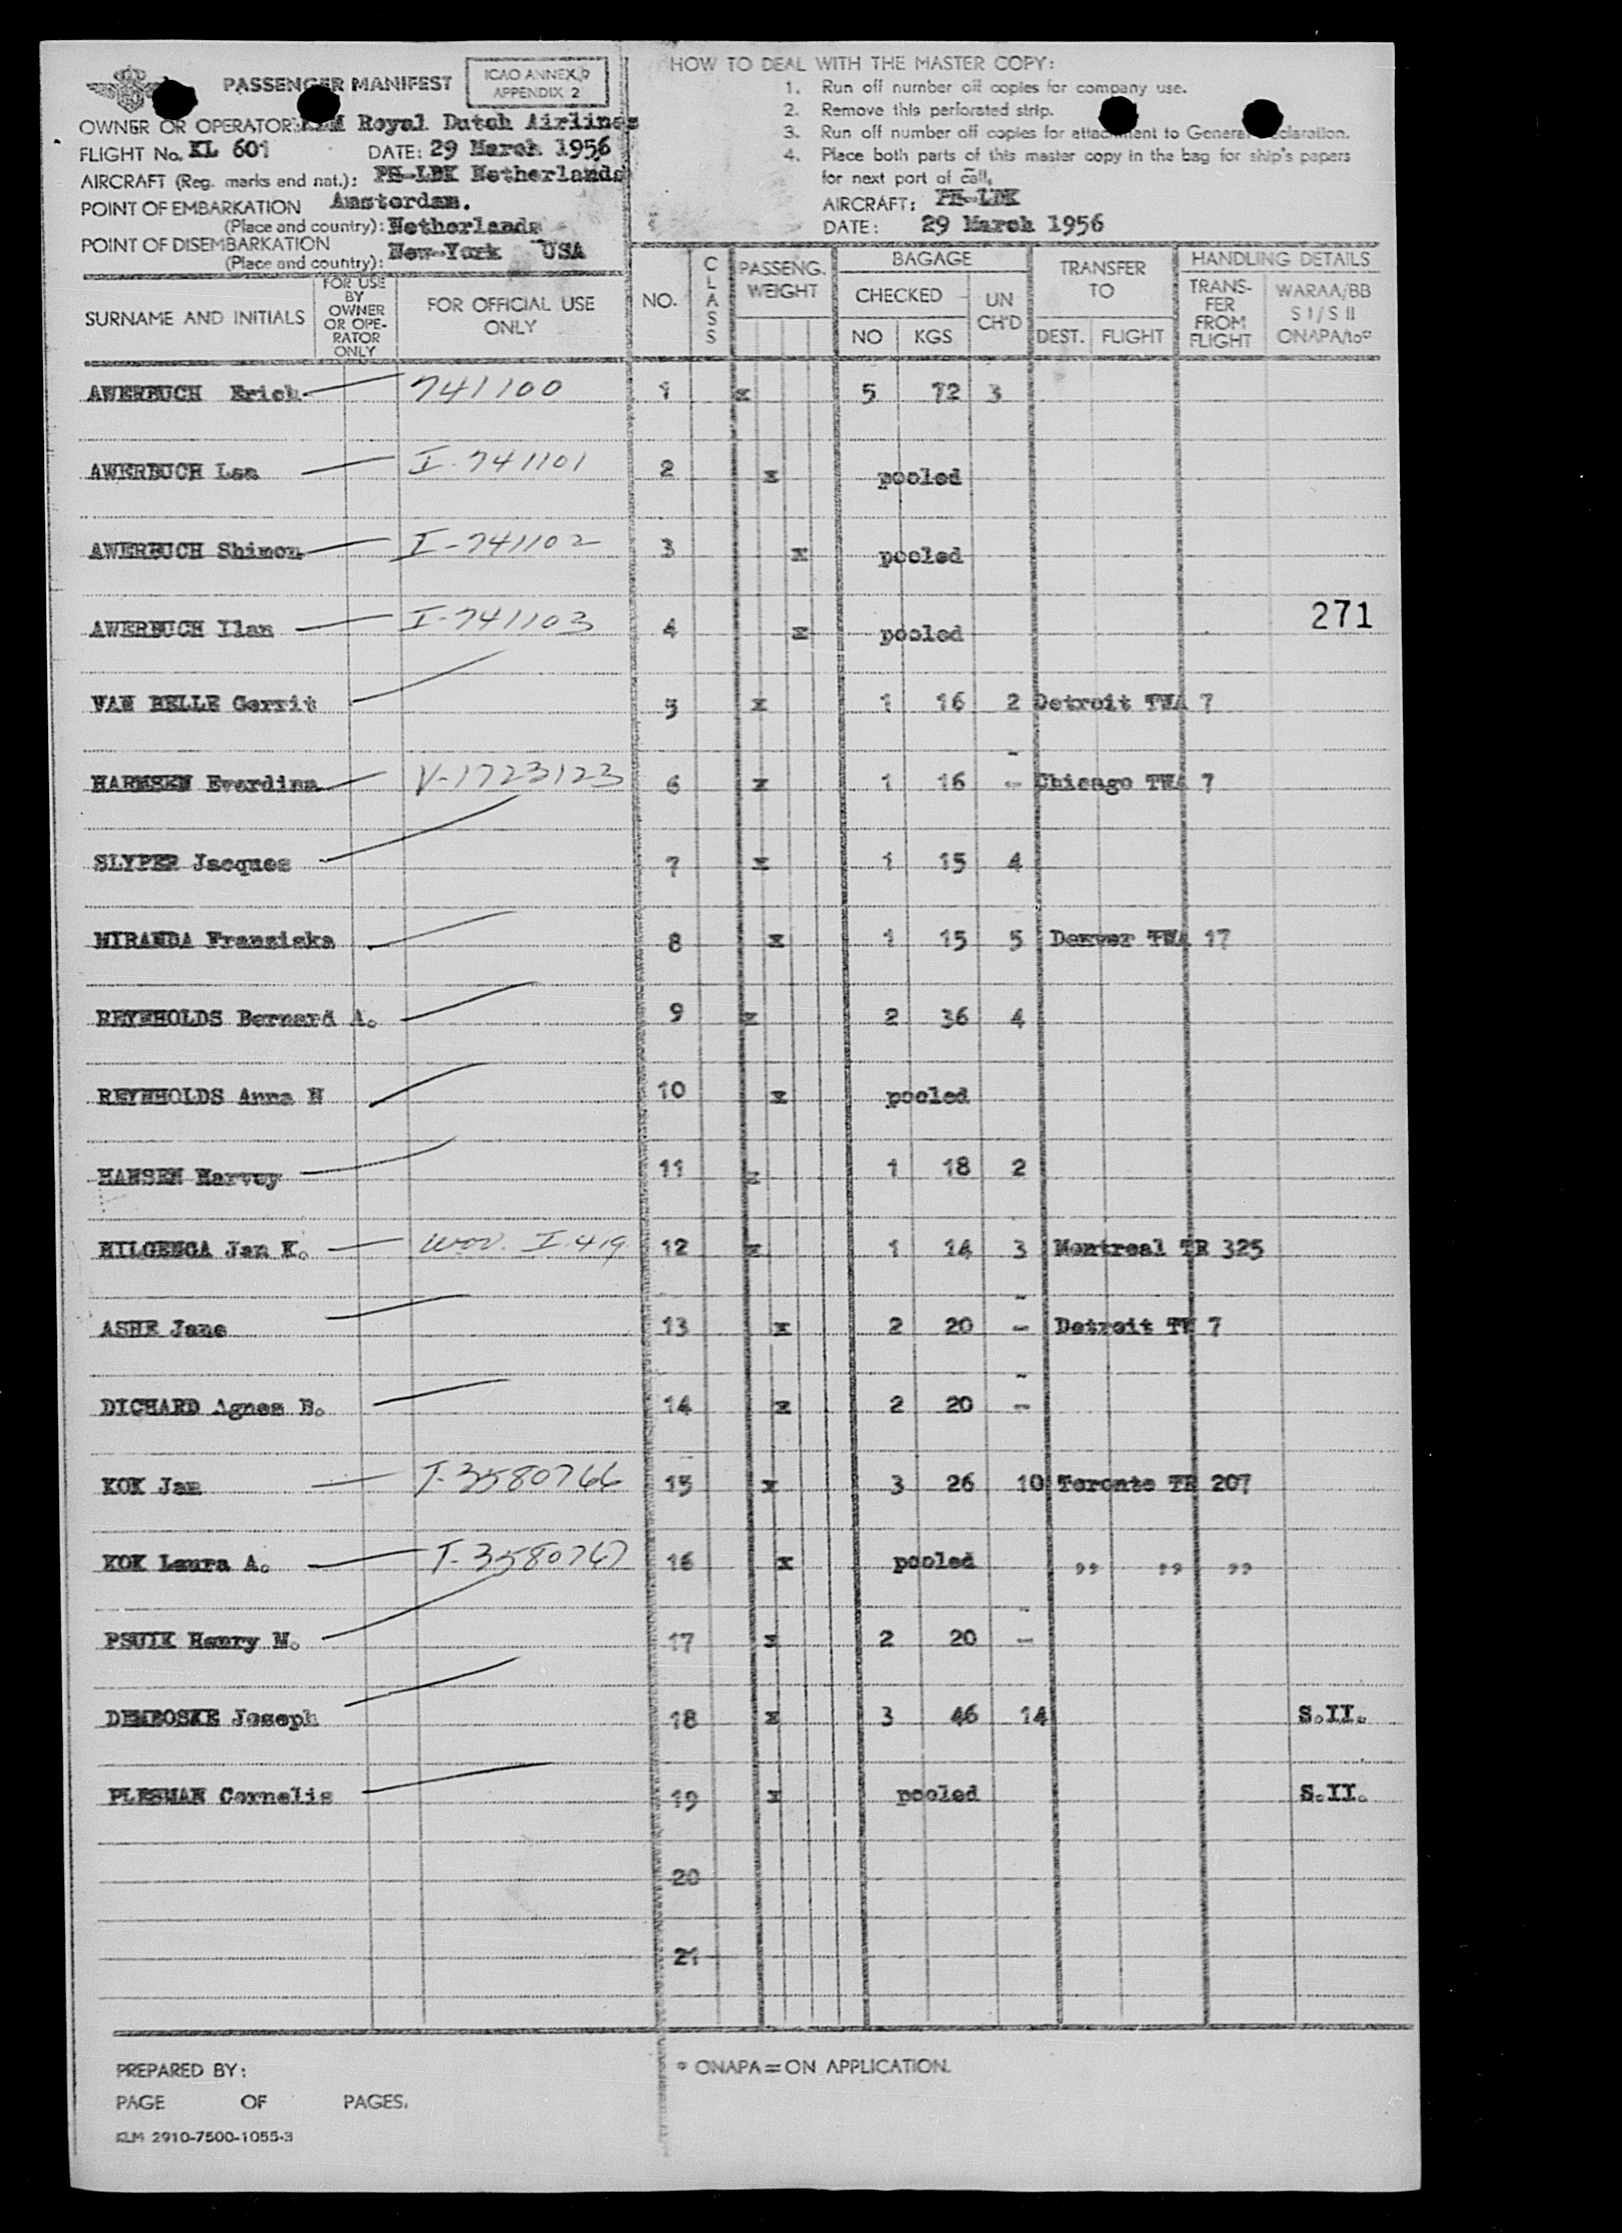 PASSENGER MANIFEST
ICAO ANNEX 9
APPENDIX 2
OWNER OR OPERATOR: KLM Royal Dutch Airlines
FLIGHT No. KL 601 DATE: 29 March 1956
AIRCRAFT (Reg. marks and nat.): PH-LDK Netherlands
POINT OF EMBARKATION Amsterdam.
(Place and country): Netherlands
POINT OF DISEMBARKATION
(Place and country): New-York USA
HOW TO DEAL WITH THE MASTER COPY:
1. Run off number off copies for company use.
2. Remove this perforated strip.
3. Run off number off copies for attachment to General Declaration.
4. Place both parts of this master copy in the bag for ship's papers
for next port of call.
AIRCRAFT: PH-LDK
DATE: 29 March 1956
SURNAME AND INITIALS
FOR USE
BY
OWNER
OR OPE-
RATOR
ONLY
FOR OFFICIAL USE
ONLY
NO.
CLASS
PASSENG.
WEIGHT
BAGAGE
CHECKED
NO KGS
UN
CH'D
TRANSFER
TO
DEST. FLIGHT
HANDLING DETAILS
TRANS-
FER
FROM
FLIGHT
WARAA/BB
S I / S II
ONAPA/to°
AWERBUCH Erich 741100 1 x 5 72 3
AWERBUCH Lea I-741101 2 x pooled
AWERBUCH Shimon I-741102 3 x pooled
AWERBUCH Ilan I-741103 4 x pooled
271
VAN BELLE Gerrit 5 x 1 16 2 Detroit TWA 7
HARMSEN Everdina V-1723123 6 x 1 16 - Chicago TWA 7
SLYPER Jacques 7 x 1 15 4
MIRANDA Franziska 8 x 1 15 5 Denver TWA 17
REYNHOLDS Bernard A. 9 x 2 36 4
REYNHOLDS Anna N 10 x pooled
HANSEN Harvey 11 x 1 18 2
HILGENGA Jan K. I 419 12 x 1 14 3 Montreal TR 325
ASHE Jane 13 x 2 20 - Detroit TW 7
DICHARD Agnes B. 14 x 2 20 -
KOK Jan T-3580766 15 x 3 26 10 Toronto TR 207
KOK Laura A. T-3580767 16 x pooled ,, ,, ,,
PSUIK Henry M. 17 x 2 20 -
DEMBOSKE Joseph 18 x 3 46 14 S.II.
PLESMAN Cornelis 19 x pooled S.II.
20
21
PREPARED BY:
PAGE OF PAGES.
KLM 2910-7500-1055-3
° ONAPA = ON APPLICATION.